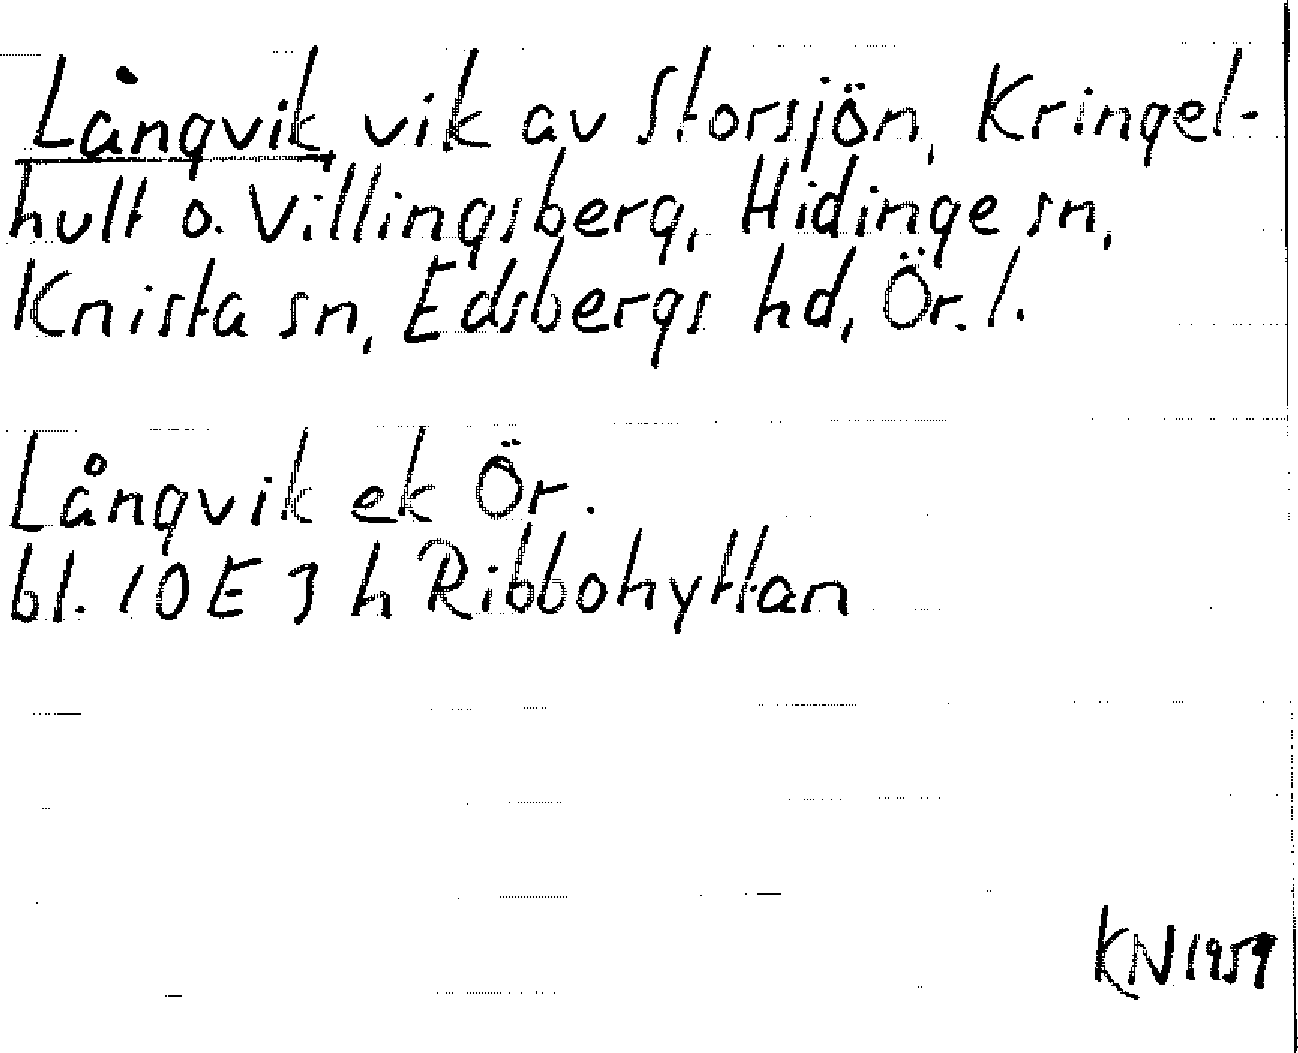 Långvik, vik av Storsjön, Kringel-
hult o. Villingsberg, Hidinge sn,
Knista sn, Edsbergs hd, Ör. l.
Långvik ek Ör.
bl. 10 E 3 h Ribbohyttan
KN 1959